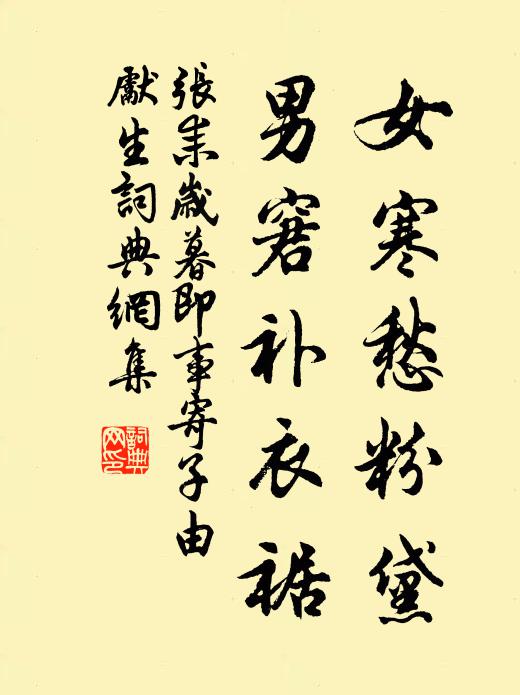 女寒愁粉黛
男窘补衣裾
張耒歲暮即事寄子由
獻生詞典網集
詞典
网印